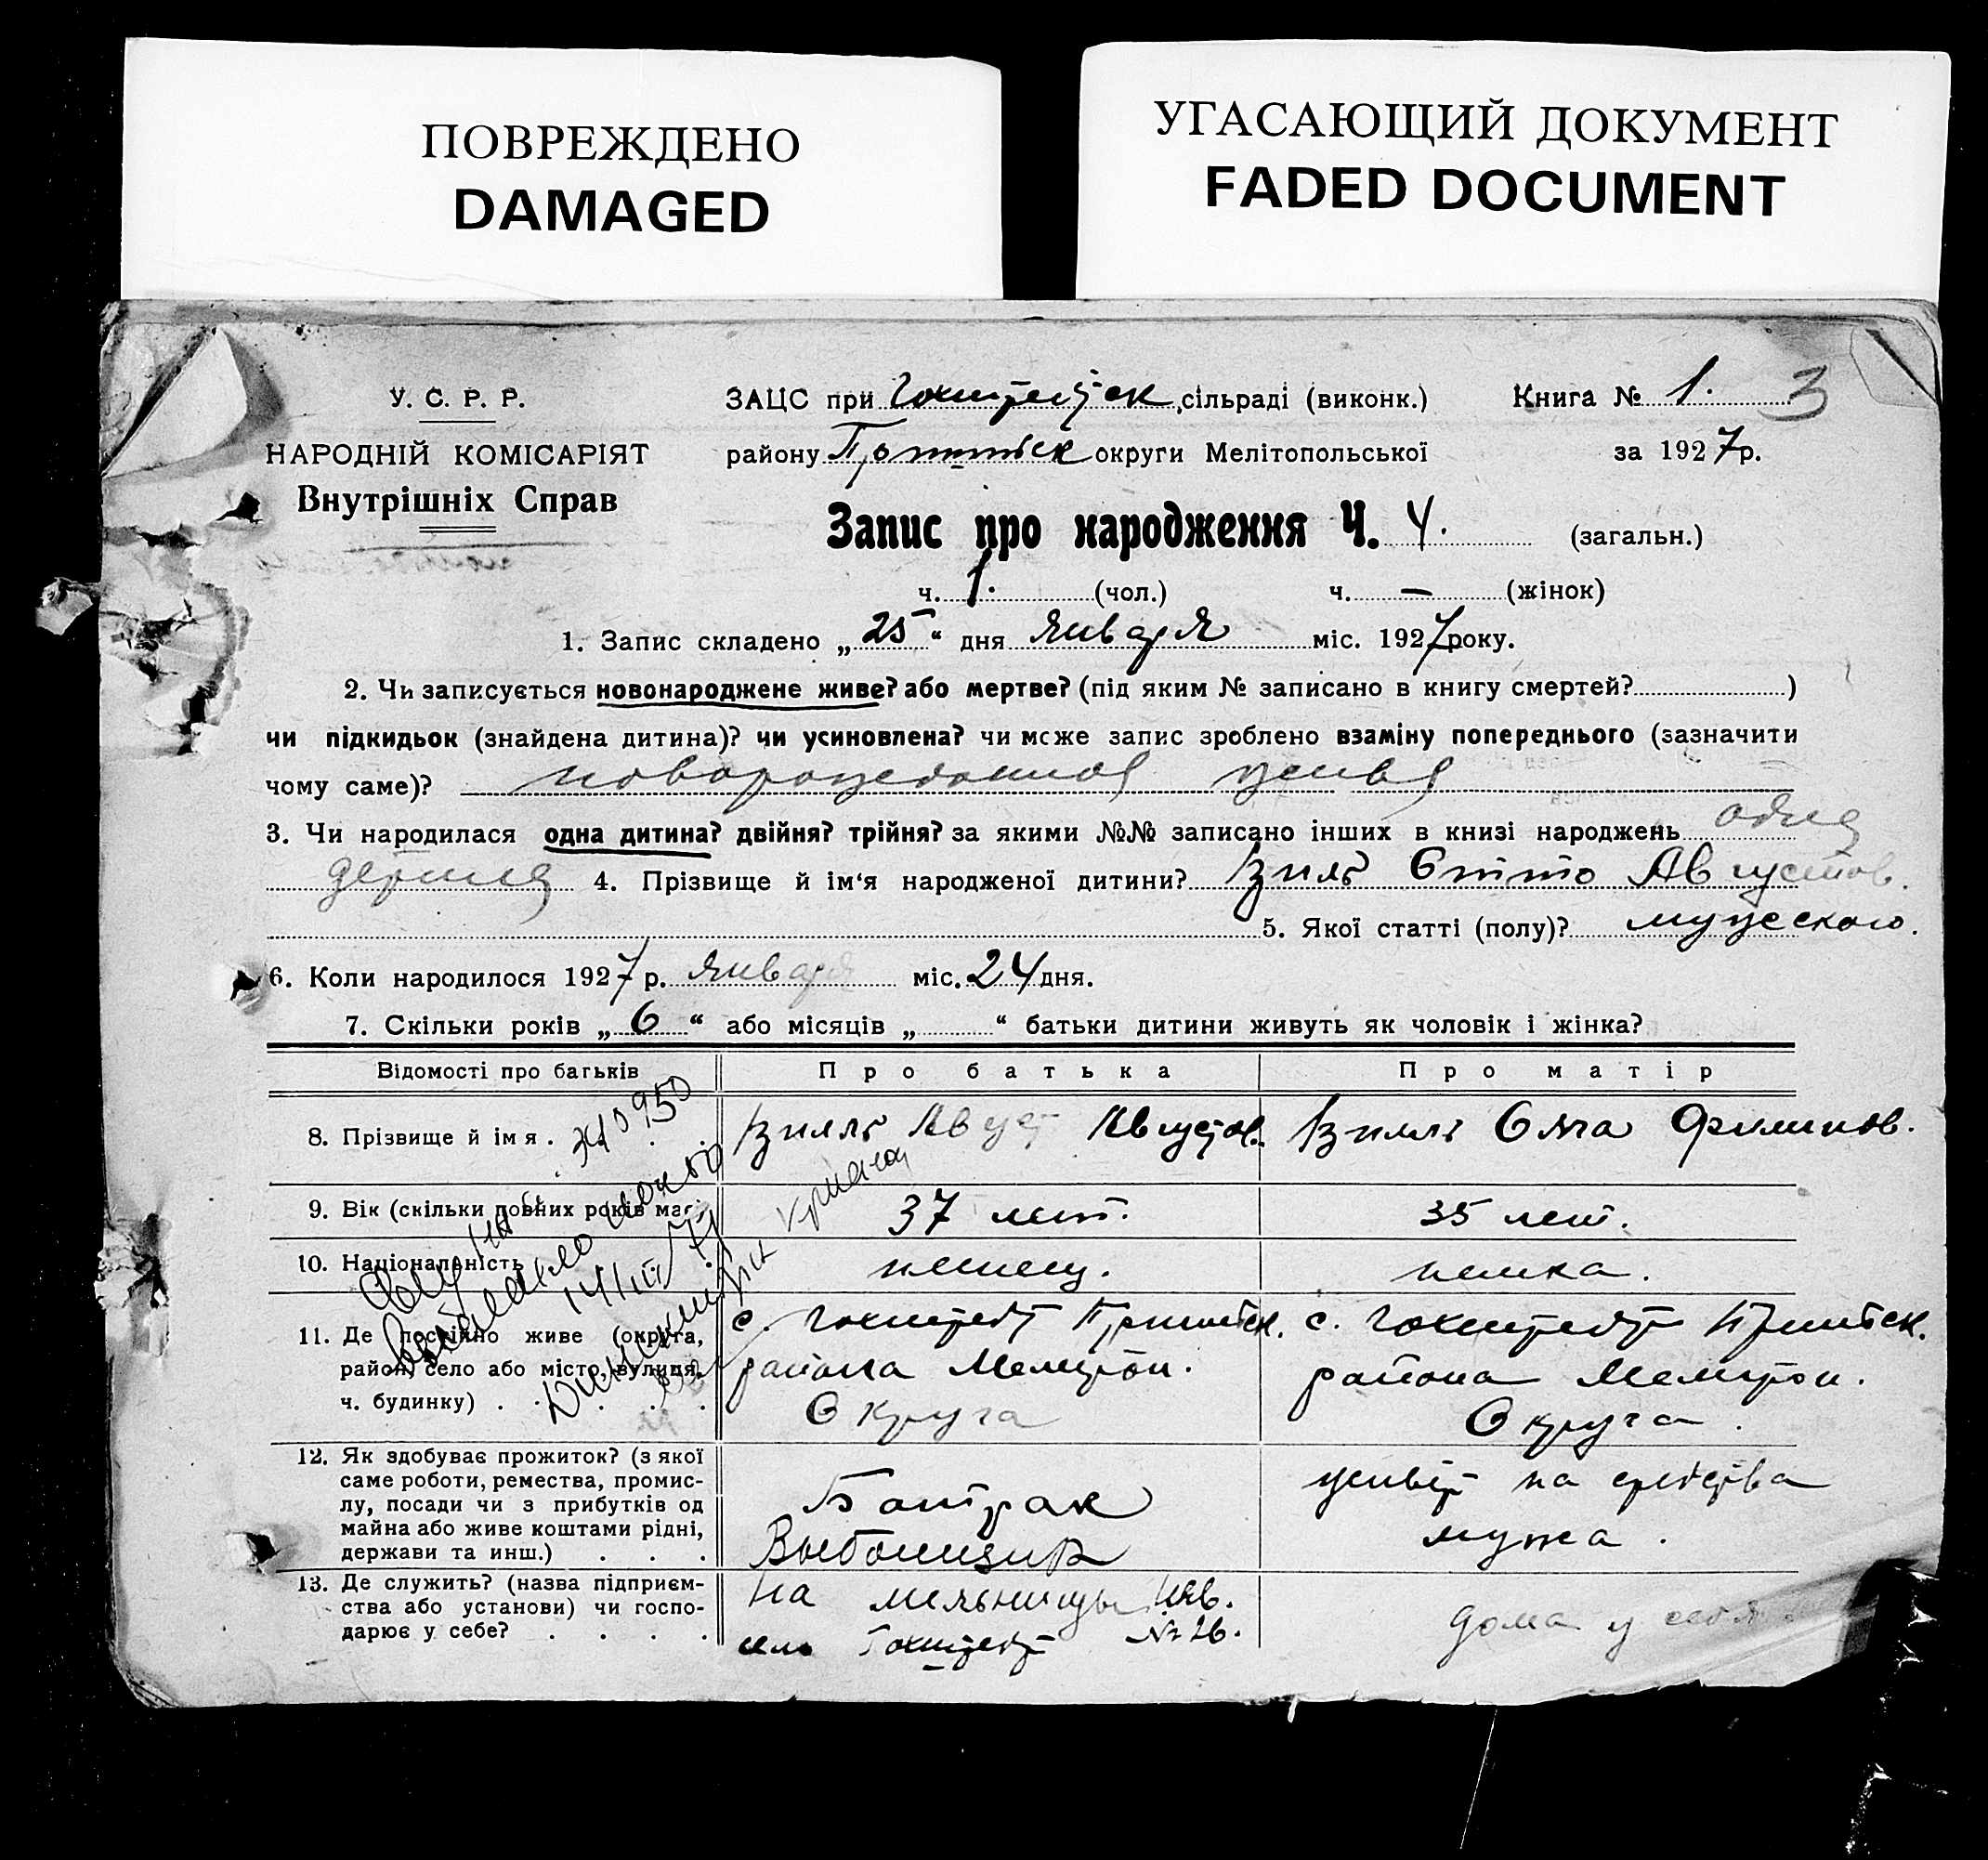 ПОВРЕЖДЕНО
DAMAGED
УГАСАЮЩИЙ ДОКУМЕНТ
FADED DOCUMENT
У. С. Р. Р.
НАРОДНІЙ КОМІСАРІЯТ
Внутрішніх Справ
ЗАЦС при Гохштедтск. сільраді (виконк.)
Книга № 1. 3
району Пришибск округи Мелітопольської
за 1927 р.
Запис про народження Ч. 4. (загальн.)
ч. 1. (чол.) ч. — (жінок)
1. Запис складено „25“ дня Января міс. 1927 року.
2. Чи записується новонароджене живе? або мертве? (під яким № записано в книгу смертей? )
чи підкидьок (знайдена дитина)? чи усиновлена? чи може запис зроблено взаміну попереднього (зазначити
чому саме)? новорожденное живое
3. Чи народилася одна дитина? двійня? трійня? за якими №№ записано інших в книзі народжень одна
4. Прізвище й ім'я народженої дитини? Отто Августов.
5. Якої статті (полу)? мужеского.
6. Коли народилося 1927 р. Января міс. 24 дня.
7. Скільки років „6“ або місяців „ “ батьки дитини живуть як чоловік і жінка?
Відомості про батьків
Про батька
Про матір
8. Прізвище й імя .
Август Августов.
9. Вік (скільки повних років має)
37 лет.
35 лет.
10. Національність
немец.
немка.
11. Де постійно живе (округа,
район, село або місто, вулиця,
ч. будинку) . . . .
с. Гохштедт Пришибск.
района Мелитоп.
Округа
с. Гохштедт Пришибск.
района Мелитоп.
Округа.
12. Як здобуває прожиток? (з якої
саме роботи, ремества, промис-
лу, посади чи з прибутків од
майна або живе коштами рідні,
держави та инш.) . . .
Батрак
живет на средства
мужа.
13. Де служить? (назва підприєм-
ства або установи) чи госпо-
дарює у себе? . . . .
На мельницы
село Гохштедт № 26.
дома у себя